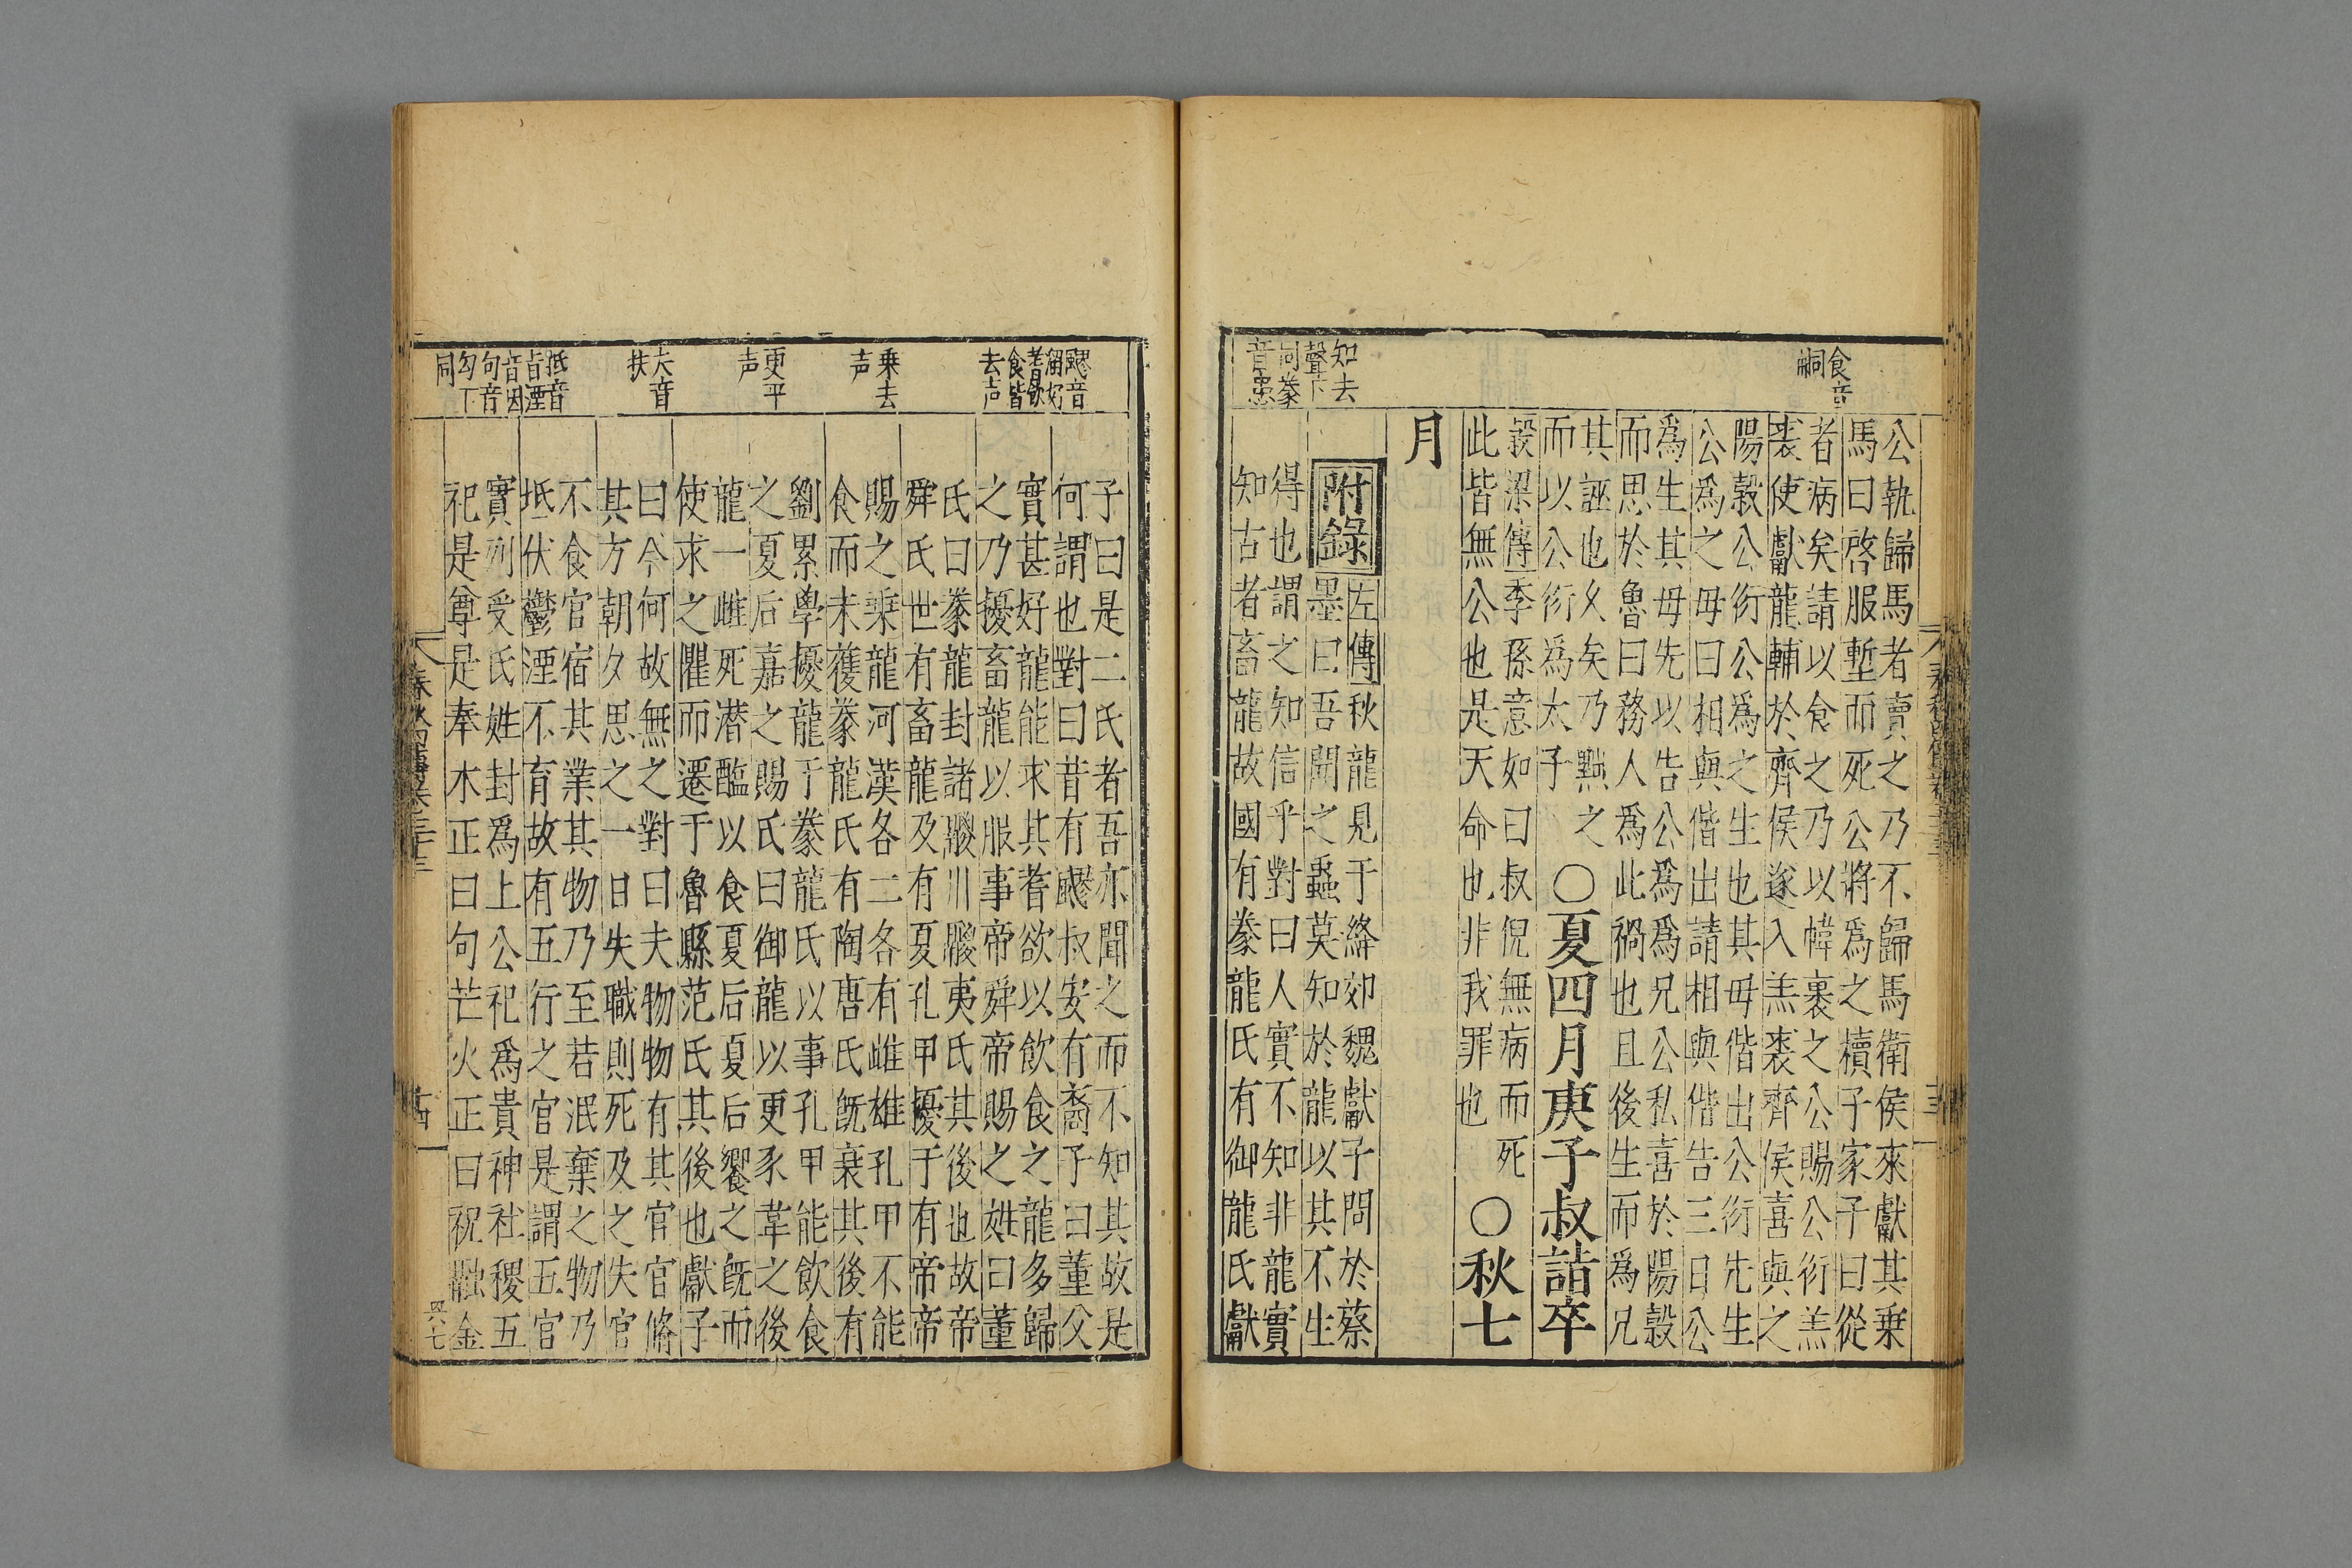 食音
嗣
公執歸馬者賣之乃不歸馬衛侯來獻其乗
馬曰啓服塹而死公將爲之櫝子家子曰從
者病矣請以食之乃以幃裹之公賜公衍羔
裘使獻龍輔於齊侯遂入羔裘齊侯喜與之
陽穀公衍公爲之生也其母偕出公衍先生
公爲之母曰相與偕出請相與偕告三日公
爲生其母先以告公爲爲兄公私喜於陽穀
而思於魯曰務人爲此禍也且後生而爲兄
其誣也久矣乃黜之
而以公衍爲太子
○夏四月庚子叔詣卒
穀梁傳季孫意如曰叔倪無病而死
此皆無公也是天命也非我罪也
○秋七
月
知去
聲下
同豢
音患
附錄
左傳秋龍見于絳郊魏獻子問於蔡
墨曰吾聞之蟲莫知於龍以其不生
得也謂之知信乎對曰人實不知非龍實
知古者畜龍故國有豢龍氏有御龍氏獻
飂音
溜好
耆飲
食皆
去声
乗去
声
更平
声
夫音
扶
抵音
旨湮
音因
句音
勾下
同
子曰是二氏者吾亦聞之而不知其故是
何謂也對曰昔有飂叔安有裔子曰董父
實甚好龍能求其耆欲以飲食之龍多歸
之乃擾畜龍以服事帝舜帝賜之姓曰董
氏曰豢龍封諸鬷川鬷夷氏其後也故帝
舜氏世有畜龍及有夏孔甲擾于有帝帝
賜之乘龍河漢各二各有雌雄孔甲不能
食而未獲豢龍氏有陶唐氏既衰其後有
劉累學擾龍于豢龍氏以事孔甲能飲食
之夏后嘉之賜氏曰御龍以更豕韋之後
龍一雌死潜醢以食夏后夏后饗之既而
使求之懼而遷于魯縣范氏其後也獻子
曰今何故無之對曰夫物物有其官官脩
其方朝夕思之一日失職則死及之失官
不食官宿其業其物乃至若泯棄之物乃
坻伏鬱湮不育故有五行之官是謂五官
實列受氏姓封爲上公祀爲貴神社稷五
祀是尊是奉木正曰句芒火正曰祝融金